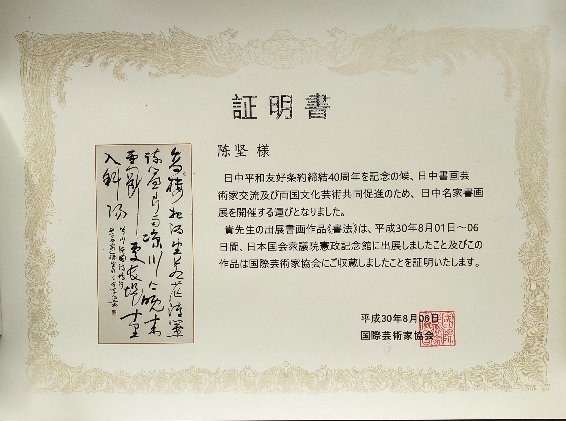 証明書
陈坚 様
日中平和友好条約締結40周年を記念の候、日中書画芸
術家交流及び両国文化芸術共同促進のため、日中名家書画
展を開催する運びとなりました。
貴先生の出展書画作品《書法》は、平成30年8月01日～06
日間、日本国会衆議院憲政記念館に出展しましたこと及びこの
作品は国際芸術家協会にご収蔵しましたことを証明いたします。
平成30年8月06日
国際芸術家協会